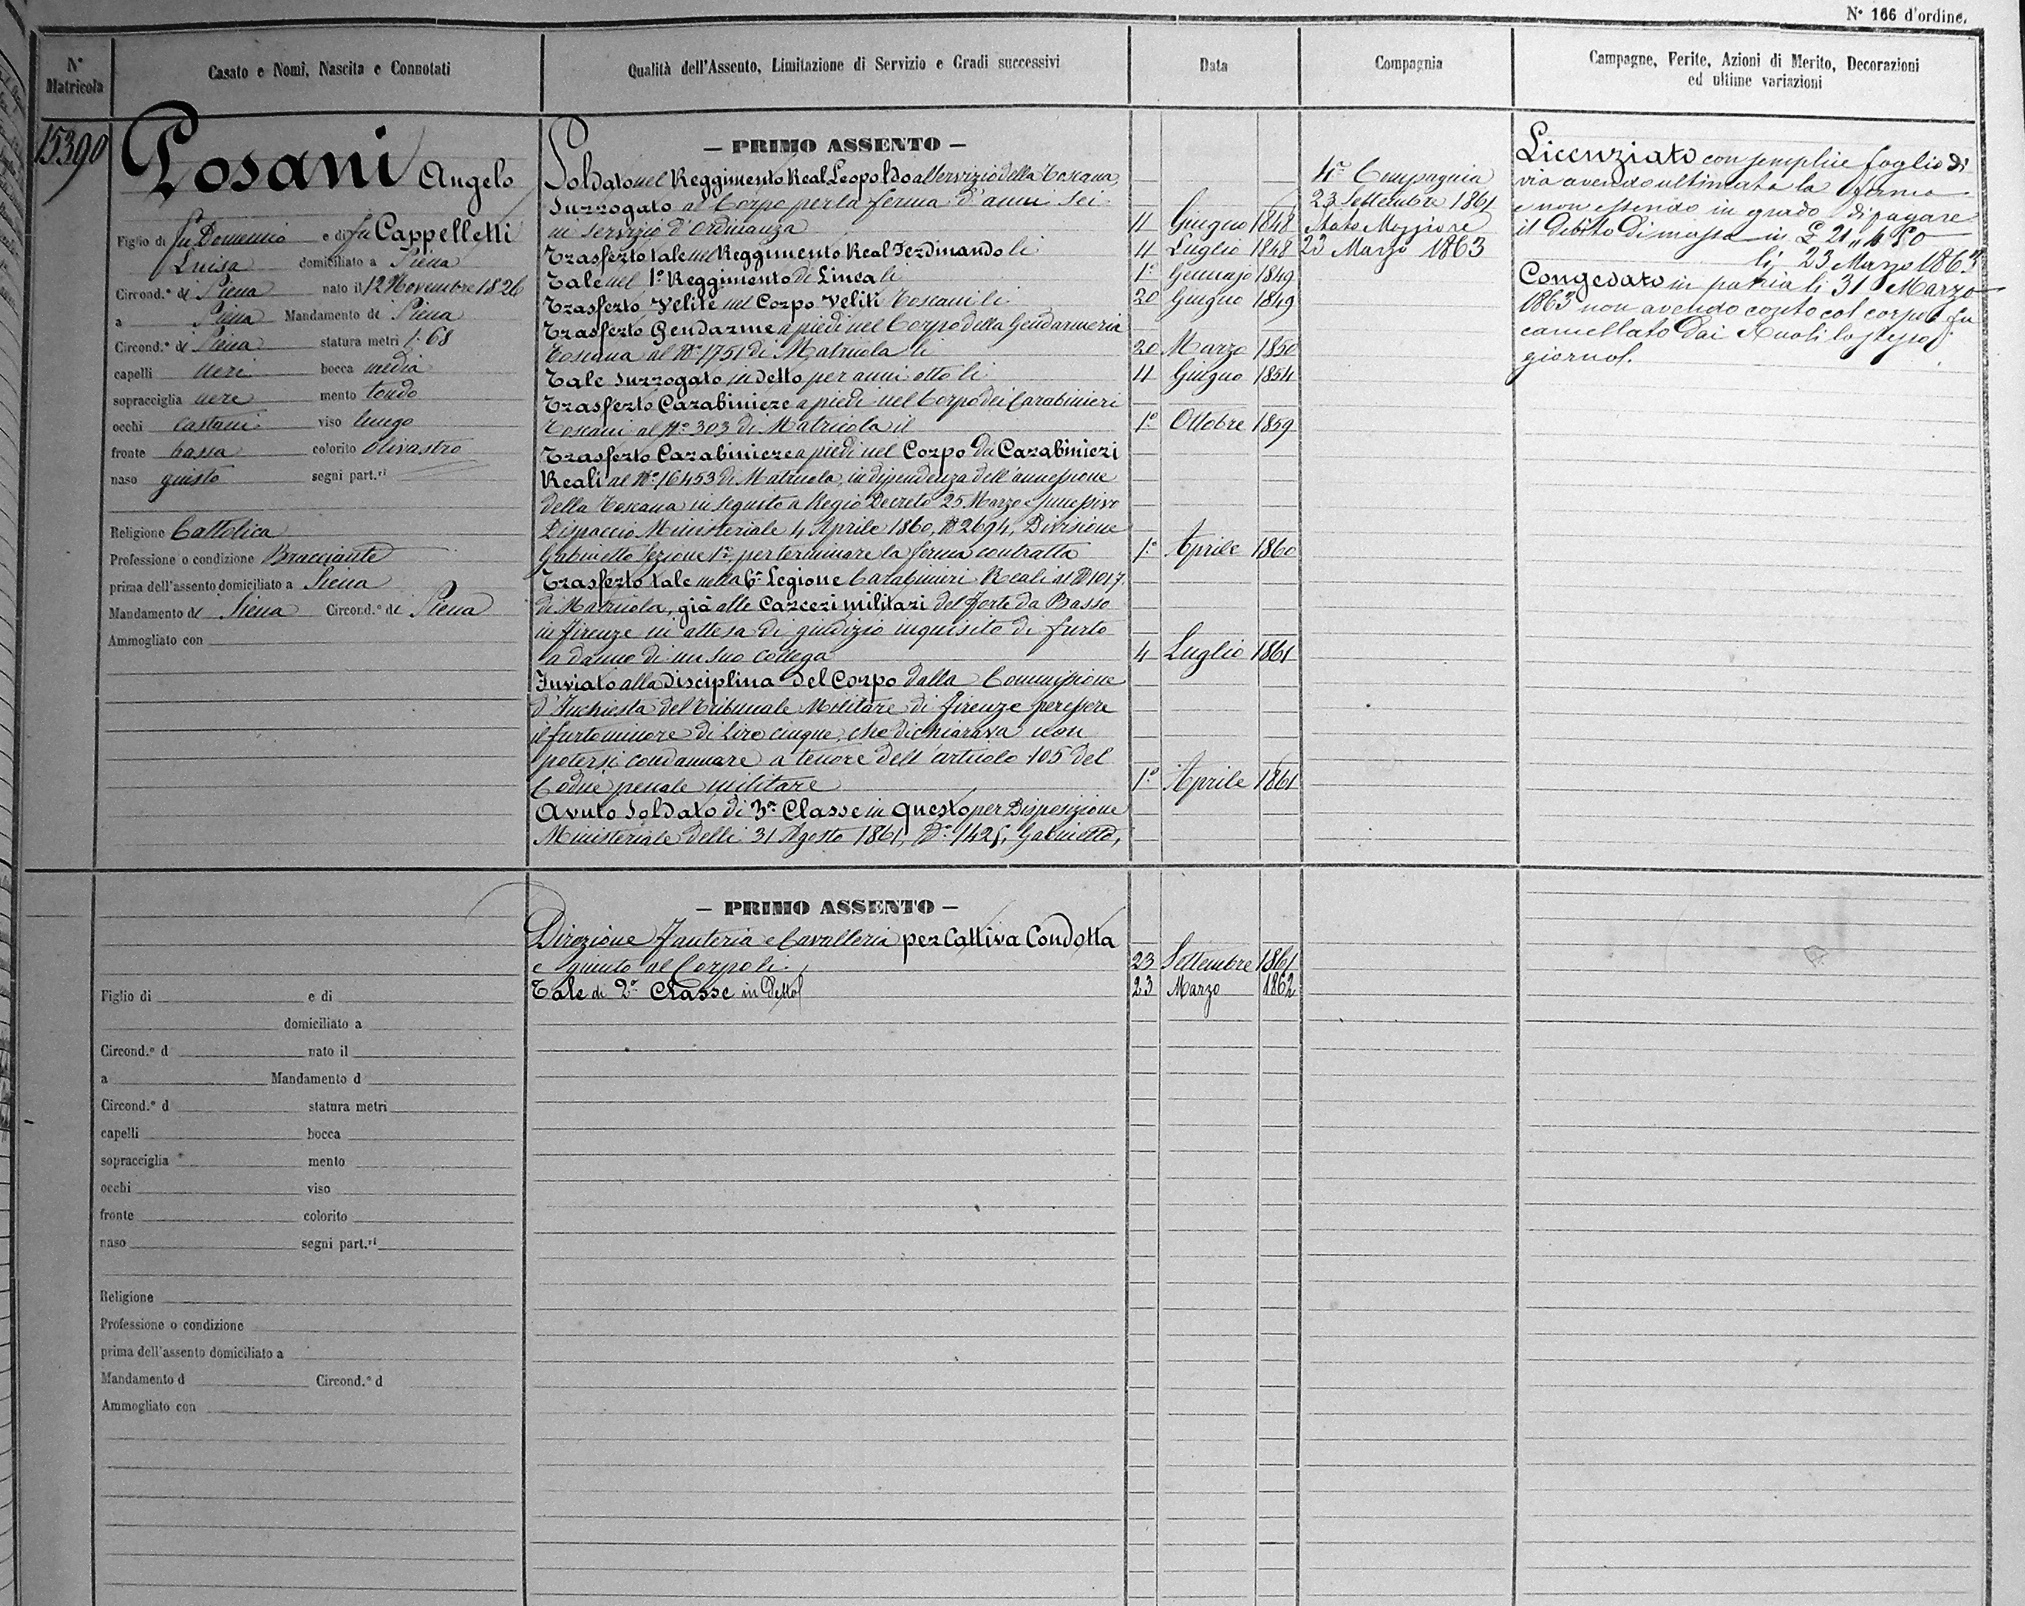 Nº 166 d'ordine.
Nº Matricola
Casato e Nomi, Nascita e Connotati
Qualità dell'Assento, Limitazione di Servizio e Gradi successivi
Data
Compagnia
Campagne, Ferite, Azioni di Merito, Decorazioni
ed ultime variazioni
15390
Posani Angelo
Figlio di fu Domenico e di fu Cappelletti
Luisa domiciliato a Siena
Circond.º di Siena nato il 12 Novembre 1826
a Siena Mandamento di Siena
Circond.º di Siena statura metri 1:68
capelli neri bocca media
sopracciglia nere mento tondo
occhi castani viso lungo
fronte bassa colorito olivastro
naso giusto segni part.ri
Religione Cattolica
Professione o condizione Bracciante
prima dell'assento domiciliato a Siena
Mandamento di Siena Circond.º di Siena
Ammogliato con
— PRIMO ASSENTO —
Soldato nel Reggimento Real Leopoldo al servizio della Toscana,
Surrogato al Corpo per la ferma d'anni sei
in servizio d'Ordinanza 11 Giugno 1848
Trasferto tale nel Reggimento Real Ferdinando li 11 Luglio 1848
Tale nel 1º Reggimento di Linea li 1º Gennajo 1849
Trasferto Velite nel Corpo Veliti Toscani li 20 Giugno 1849
Trasferto Gendarme a piedi nel Corpo della Gendarmeria
Toscana al Nº 1751 di Matricola li 20 Marzo 1850
Tale surrogato in detto per anni otto li 11 Giugno 1854
Trasferto Carabiniere a piedi nel Corpo dei Carabinieri
Toscani al Nº 303 di Matricola il 1º Ottobre 1859
Trasferto Carabiniere a piedi nel Corpo dei Carabinieri
Reali al Nº 16453 di Matricola, in dipendenza dell'annessione
della Toscana in seguito a Regio Decreto 25 Marzo e successivo
Dispaccio Ministeriale 4 Aprile 1860, Nº 2694, Divisione
Gabinetto Sezione 1ª per terminare la ferma contratta 1º Aprile 1860
Trasferto tale nella 6ª Legione Carabinieri Reali al Nº 1017
di Matricola, già alle Carceri militari del Forte da Basso
in Firenze in attesa di giudizio inquisito di furto
a danno di un suo collega 4 Luglio 1861
Inviato alla disciplina del Corpo dalla Commissione
d'Inchiesta del Tribunale Militare di Firenze per essere
il furto minore di Lire cinque, che dichiarava non
potersi condannare a tenore dell'articolo 105 del
Codice penale militare 1º Aprile 1861
Avuto Soldato di 3ª Classe in questo per Disposizione
Ministeriale delli 31 Agosto 1861, Nº 1425, Gabinetto,
4ª Compagnia
23 Settembre 1861
Stato Maggiore
23 Marzo 1863
Licenziato con semplice foglio di
via avendo ultimata la ferma
e non essendo in grado di pagare
il debito di massa in
li 23 Marzo 1863
Congedato in patria li 31 Marzo
1863 non avendo coxito col corpo fu
cancellato dai Ruoli lo stesso
giorno.
— PRIMO ASSENTO —
Direzione Fanteria e Cavalleria per Cattiva Condotta
e giunto al Corpo li 23 Settembre 1861
Tale di 2ª Classe in detto 23 Marzo 1862
Figlio di e di
domiciliato a
Circond.º d nato il
a Mandamento d
Circond.º d statura metri
capelli bocca
sopracciglia mento
occhi viso
fronte colorito
naso segni part.ri
Religione
Professione o condizione
prima dell'assento domiciliato a
Mandamento d Circond.º d
Ammogliato con